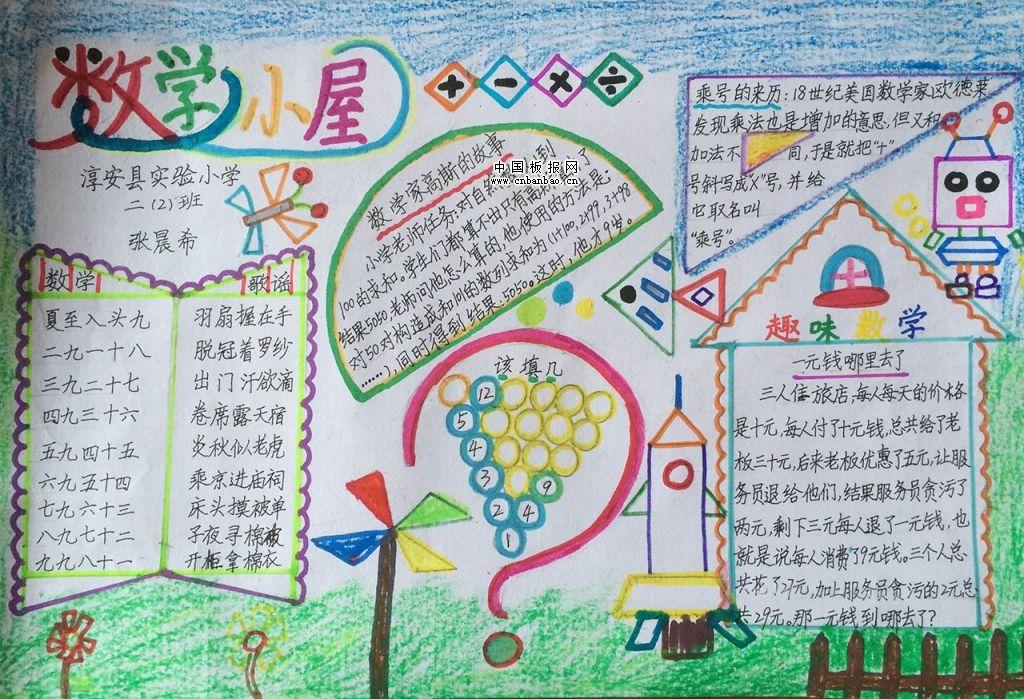 数学小屋
+ - × ÷
淳安县实验小学
二(2)班
张晨希
数学
歌谣
夏至入头九
羽扇握在手
二九一十八
脱冠着罗纱
三九二十七
出门汗欲滴
四九三十六
卷席露天宿
五九四十五
炎秋似老虎
六九五十四
乘京进庙祠
七九六十三
床头摸被单
八九七十二
子夜寻棉被
九九八十一
开柜拿棉衣
数学家高斯的故事
小学老师任务:对自然 到
100的求和。学生们都算不出只有高 了
结果5050老师问他怎么算的,他使用的方法是:
对50对构造成和101的数列求和为(1+100,2+99,3+98
……),同时得到结果:5050。这时,他才9岁。
中国板报网
www.cnbanbao.cn
乘号的来历:18世纪美国数学家欧德莱
发现乘法也是增加的意思,但又和
加法不 间,于是就把"+"
号斜写成"X"号,并给
它取名叫
"乘号"。
该填几
12
5
4
3
9
2
4
1
趣味数学
一元钱哪里去了
三人住旅店,每人每天的价格
是十元,每人付了十元钱,总共给了老
板三十元,后来老板优惠了五元,让服
务员退给他们,结果服务员贪污了
两元,剩下三元每人退了一元钱,也
就是说每人消费了9元钱。三个人总
共花了27元,加上服务员贪污的2元总
共29元。那一元钱到哪去了?